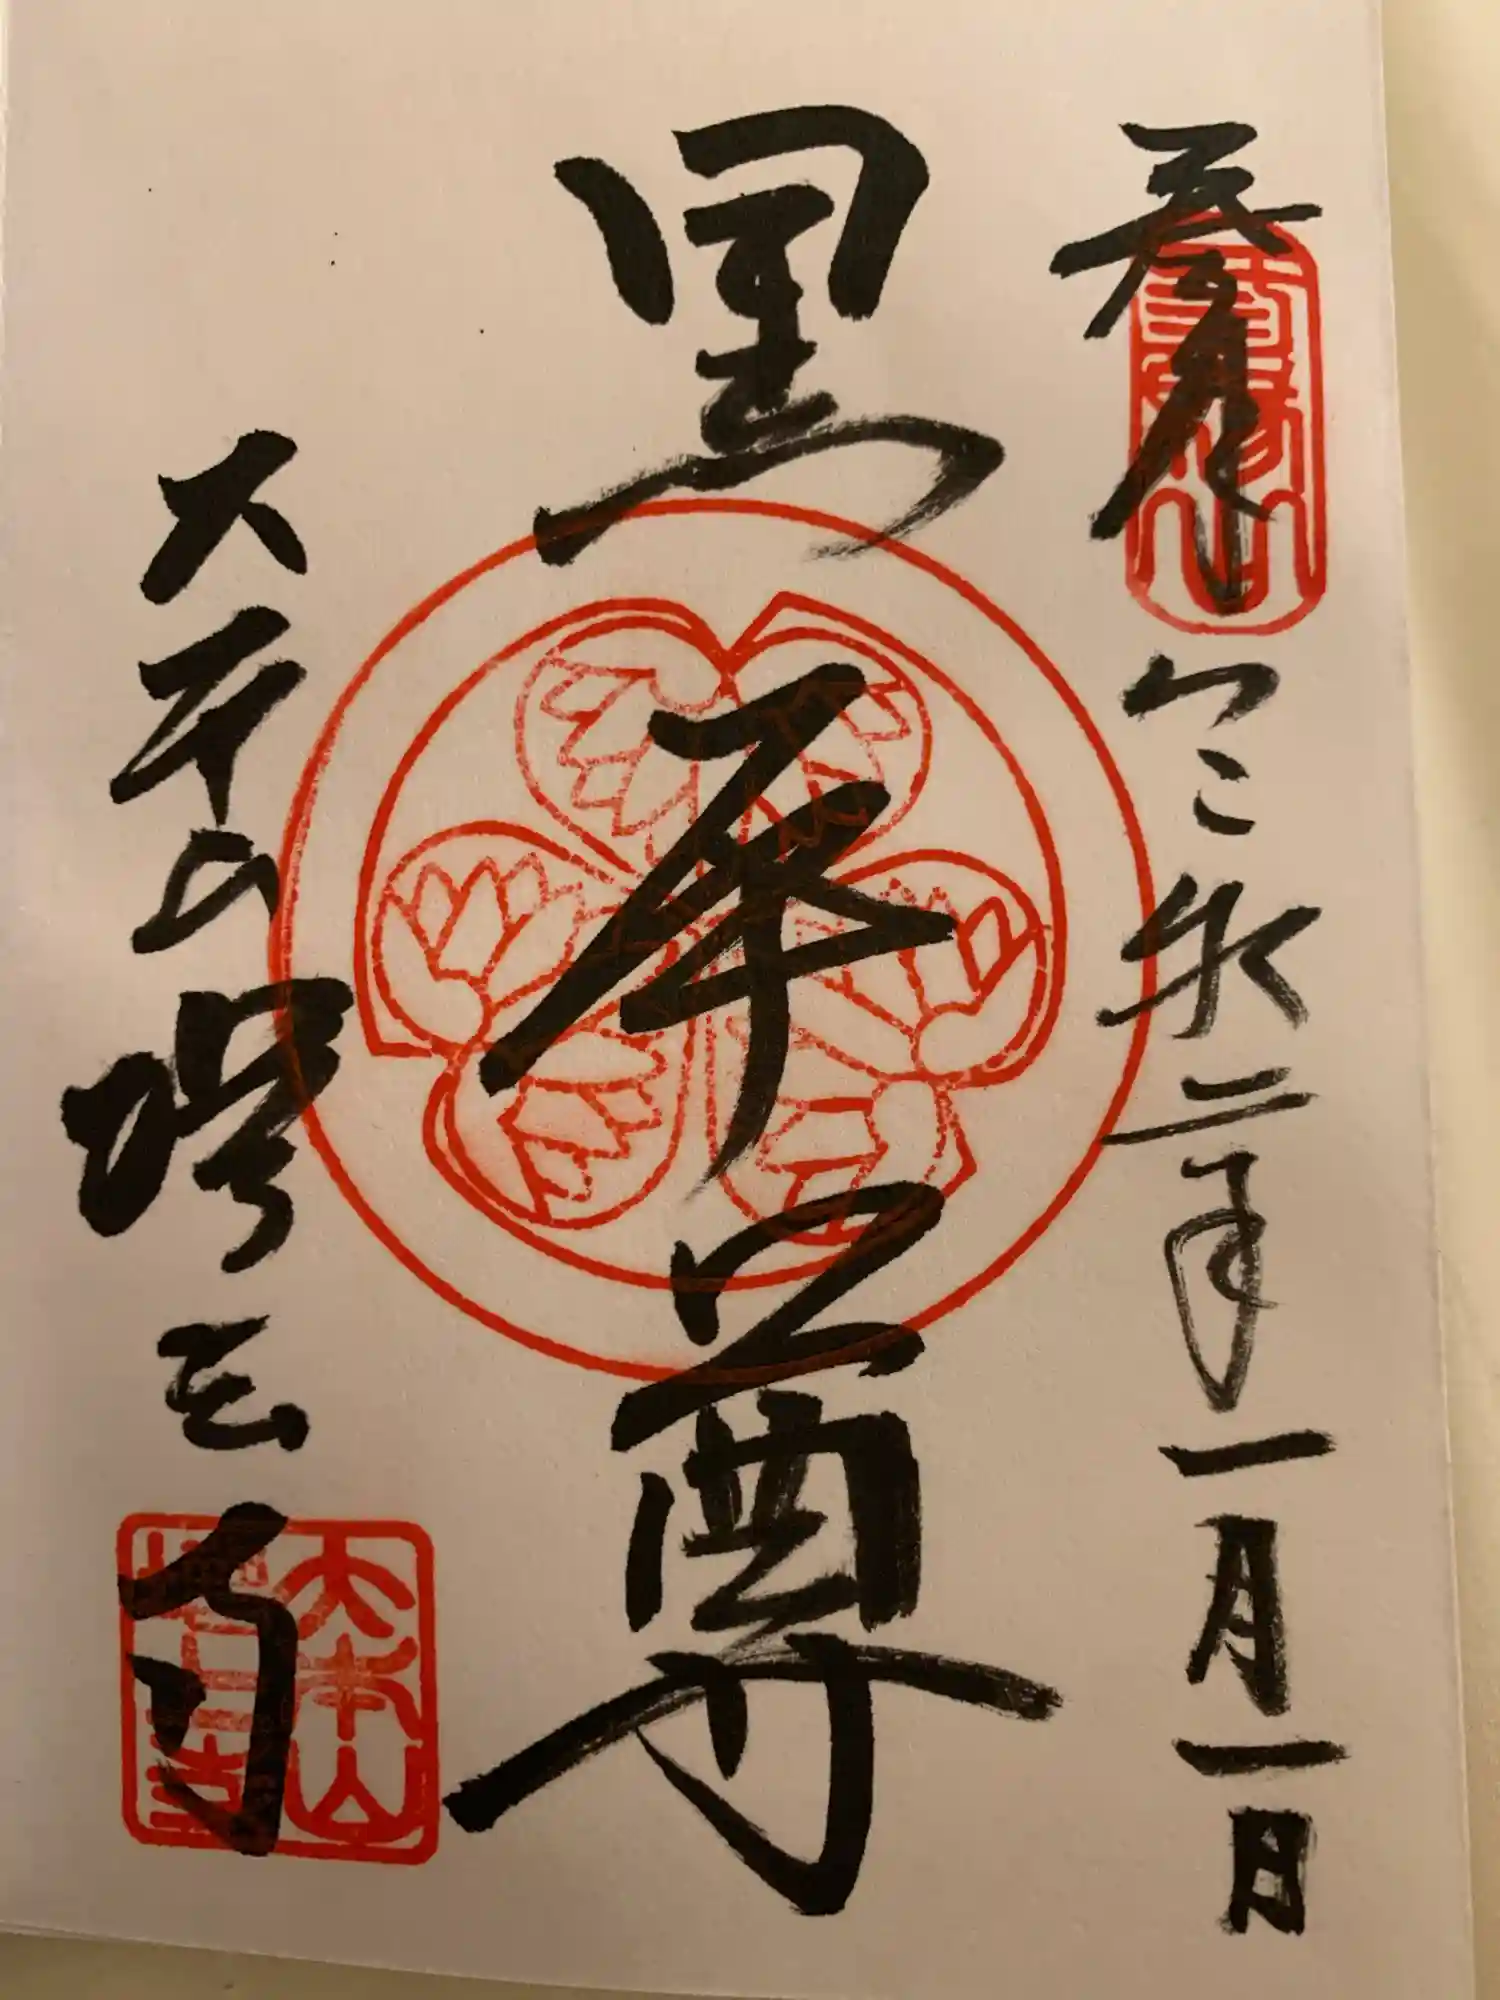 奉拝
令和二年一月一日
黒本尊
大本山増上寺
大本山
増上寺